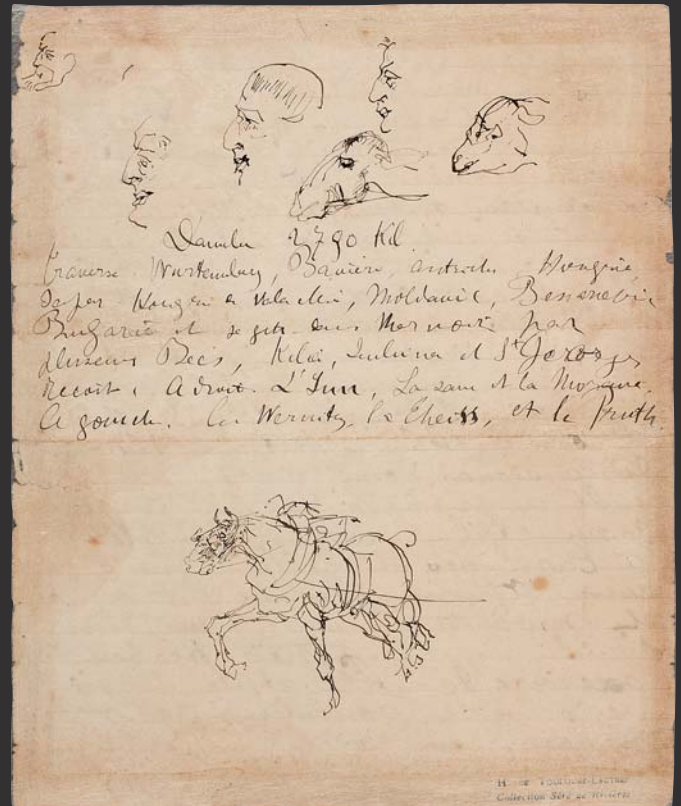 Danube 2790 Kil
traverse Wurtemberg, Bavière, autriche Hongrie
Moldavie, Bessarabie
Bulgarie et se jette dans Mer noire par
plusieurs Becs, Kilia, Sulina et St Georges
Recoit, A droite. L'Inn, La save et la Morave.
A gauche. la Wernitz, la Theiss, et le Pruth.
H. DE TOULOUSE-LAUTREC
Collection Séré de Rivières